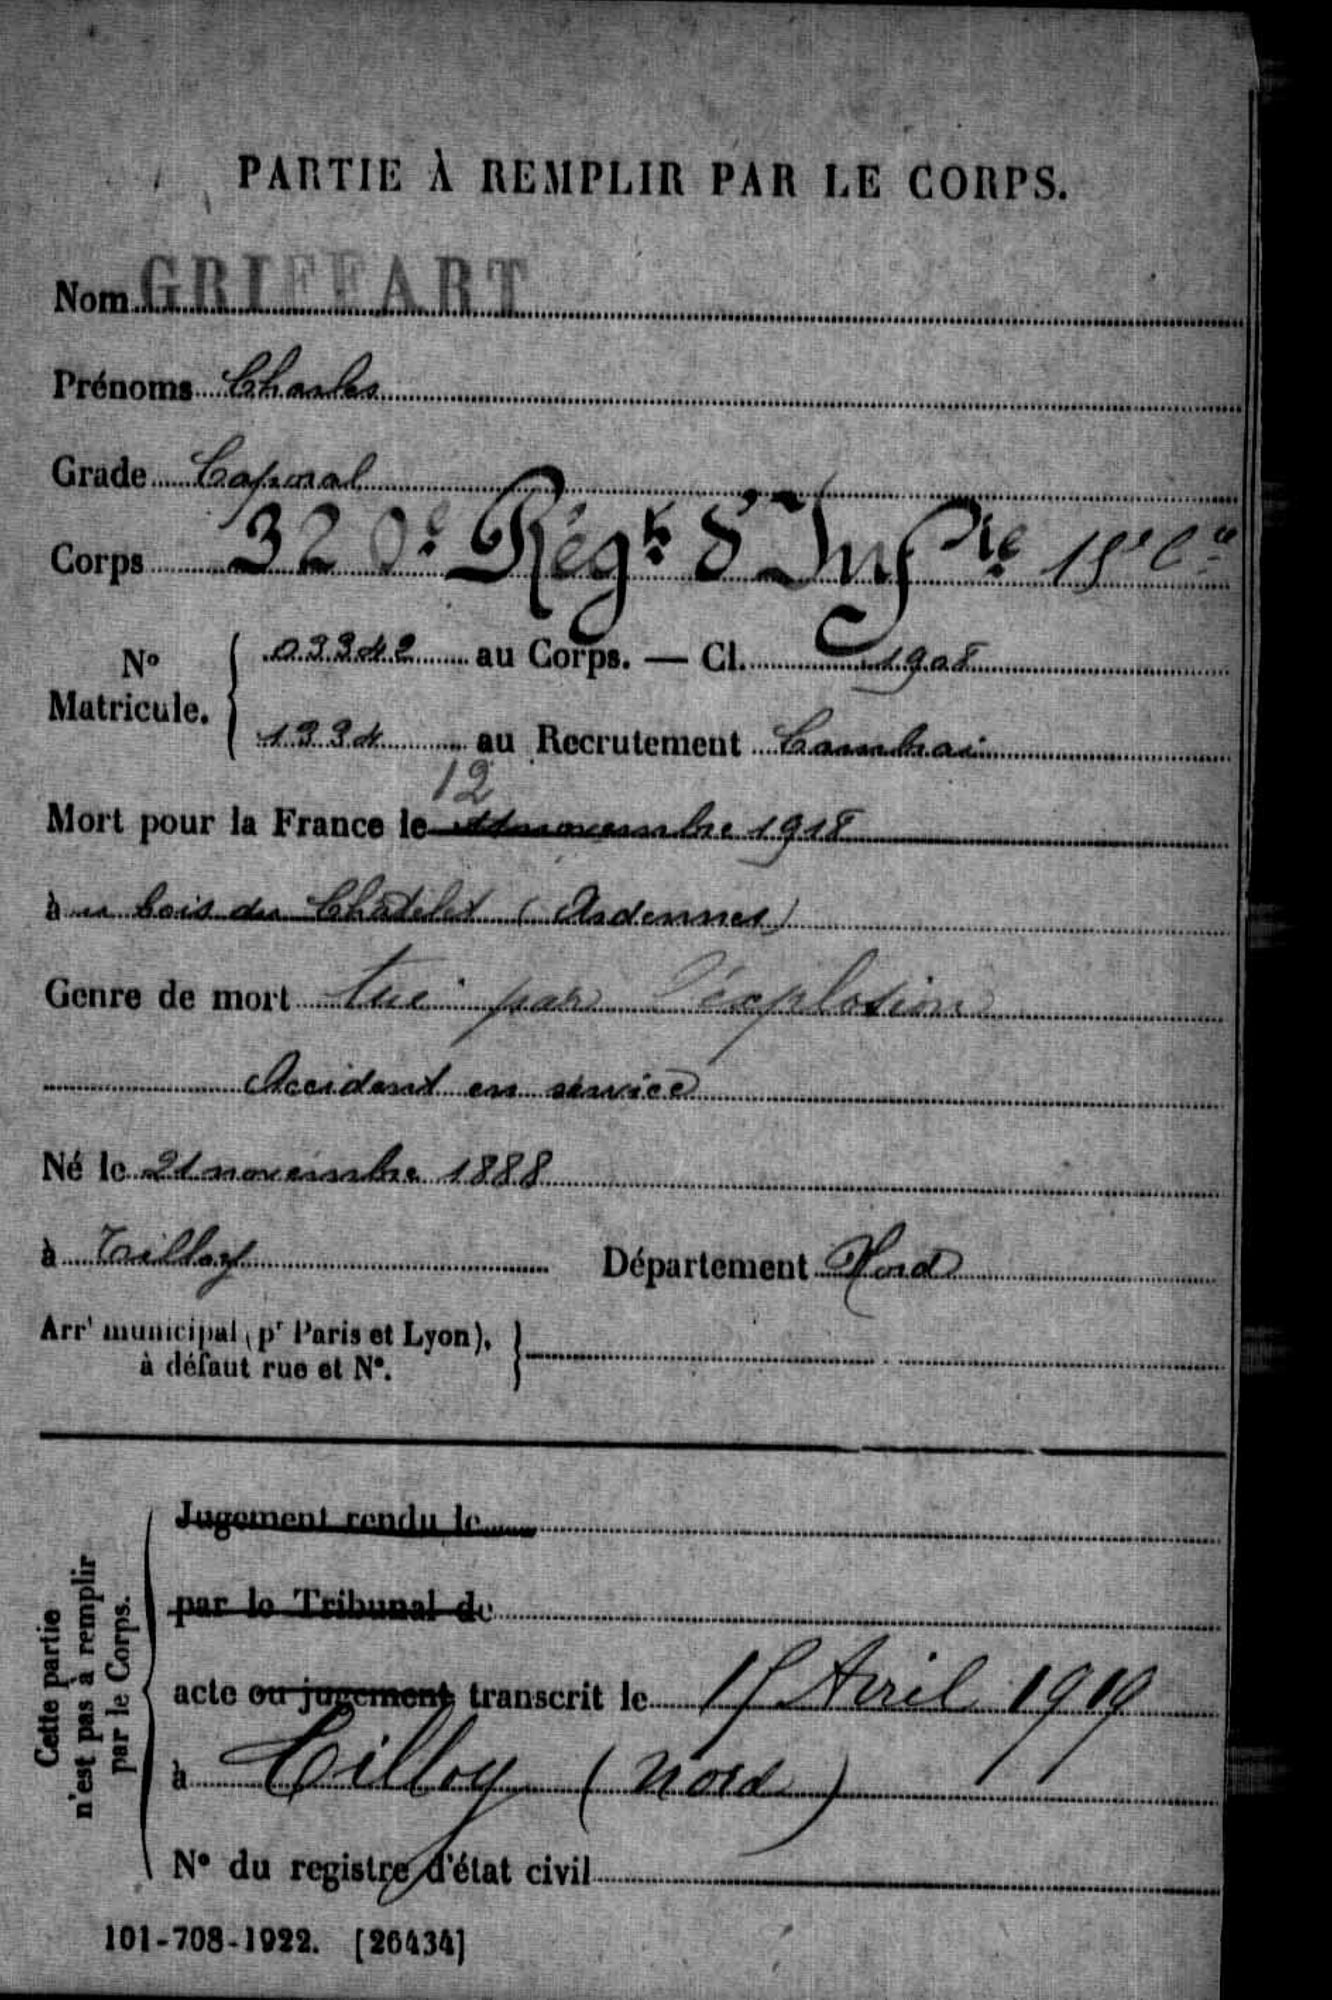 PARTIE À REMPLIR PAR LE CORPS.
Nom GRIFFART
Prénoms Charles
Grade Caporal
Corps 320e Régt d'Infrie 15e Cie
No Matricule. 03342 au Corps. — Cl. 1908
1334 au Recrutement Cambrai
12
Mort pour la France le 11 novembre 1918
au bois du Châtelet (Ardennes)
Genre de mort tué par l'explosion
Accident en service
Né le 21 novembre 1888
à Tilloy Département Nord
Arrt municipal (pr Paris et Lyon),
à défaut rue et No.
Cette partie
n'est pas à remplir
par le Corps.
Jugement rendu le
par le Tribunal de
acte ou jugement transcrit le 15 Avril 1919
à Tilloy (Nord)
No du registre d'état civil
101-708-1922. [26434]